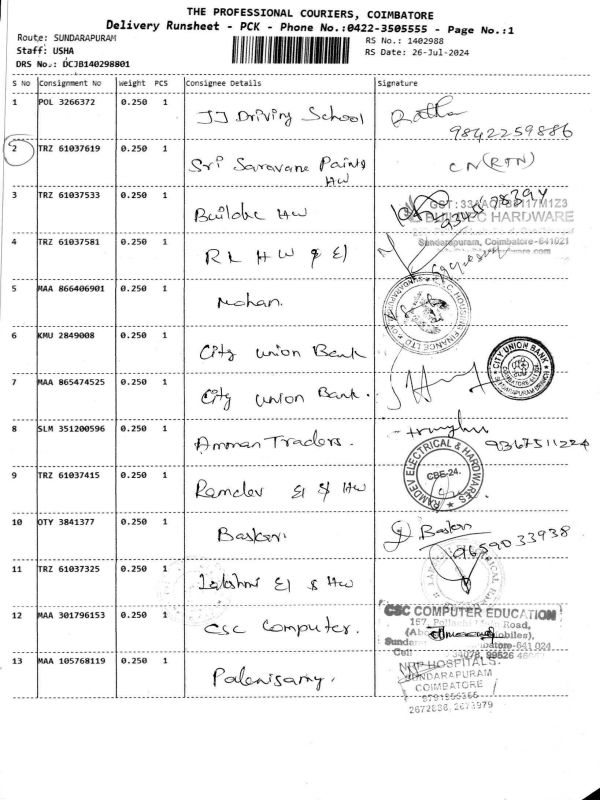 THE PROFESSIONAL COURIERS, COIMBATORE
Delivery Runsheet - PCK - Phone No.:0422-3505555 - Page No.:1
Route: SUNDARAPURAM
RS No.: 1402988
Staff: USHA
RS Date: 26-Jul-2024
DRS No.: DCJB140298801
S No Consignment No Weight PCS Consignee Details Signature
1 POL 3266372 0.250 1 JJ Driving School Ratha
9842259886
2 TRZ 61037619 0.250 1 Sri Saravana Paints CN (RTN)
HW
3 TRZ 61037533 0.250 1 HW
HARDWARE
Sundarapuram, Coimbatore-641021
4 TRZ 61037581 0.250 1 RL HW & El
5 MAA 866406901 0.250 1 Mohan.
6 KMU 2849008 0.250 1 City Union Bank
CITY UNION BANK
7 MAA 865474525 0.250 1 City Union Bank.
8 SLM 351200596 0.250 1 Amman Traders.
9367511224
RAMDEV ELECTRICAL & HARDWARES
CBE-24.
9 TRZ 61037415 0.250 1 Ramdev El & HW
10 OTY 3841377 0.250 1 Basker. Baskar
9659033938
11 TRZ 61037325 0.250 1 Lakshmi El & HW
12 MAA 301796153 0.250 1 CSC Computer. CSC COMPUTER EDUCATION
157, Pollachi Main Road,
13 MAA 105768119 0.250 1 Palanisamy. HOSPITALS.
SUNDARAPURAM
COIMBATORE